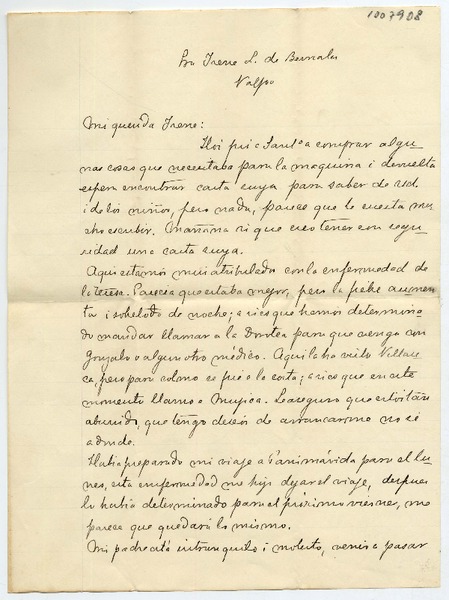 1007908
Sra Irene L. de Bernales
Valpo
Mi querida Irene:
Hoi fui a Santo a comprar algu-
nas cosas que necesitaba para la maquina i de vuelta
esperé encontrar carta suya para saber de Ud.
i de los niños, pero nada, parece que le cuesta mu-
cho escribir. Mañana si que creo tener con segu-
ridad una carta suya.
Aqui estamos mui atribulados con la enfermedad de
la Teresa. Parecia que estaba mejor, pero la fiebre aumen-
ta i sobre todo de noche; asi es que hemos determina-
do mandar llamar a la Dorotea para que venga con
Gonzalo o algun otro médico. Aqui la ha visto
pero para colmo se fué a la costa; asi es que en este
momento llamo a Mujica. Le aseguro que estoi tan
aburrido, que tengo deseos de arrancarme no sé
a donde.
Habia preparado mi viaje a para el lu-
nes, esta enfermedad me hizo dejar el viaje, despues
lo habia determinado para el próximo viernes, me
parece que quedará lo mismo.
Mi padre está intranquilo i molesto, venir a pasar